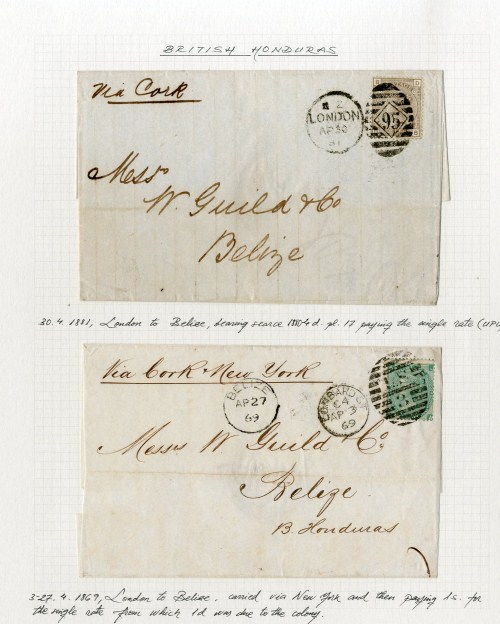 BRITISH HONDURAS
Via Cork
LONDON
AP 30
81
95
Messrs
W. Guild & Co
Belize
30.4.1881, London to Belize, bearing scarce 1880 4d. pl. 17 paying the single rate (UPU
Via Cork & New York
BELIZE
AP 27
69
LOMBARD ST
AP 3
69
Messrs W. Guild & Co
Belize.
B. Honduras
3-27.4.1869, London to Belize. carried via New York and then paying 1s. for
the single rate from which 1d was due to the colony.